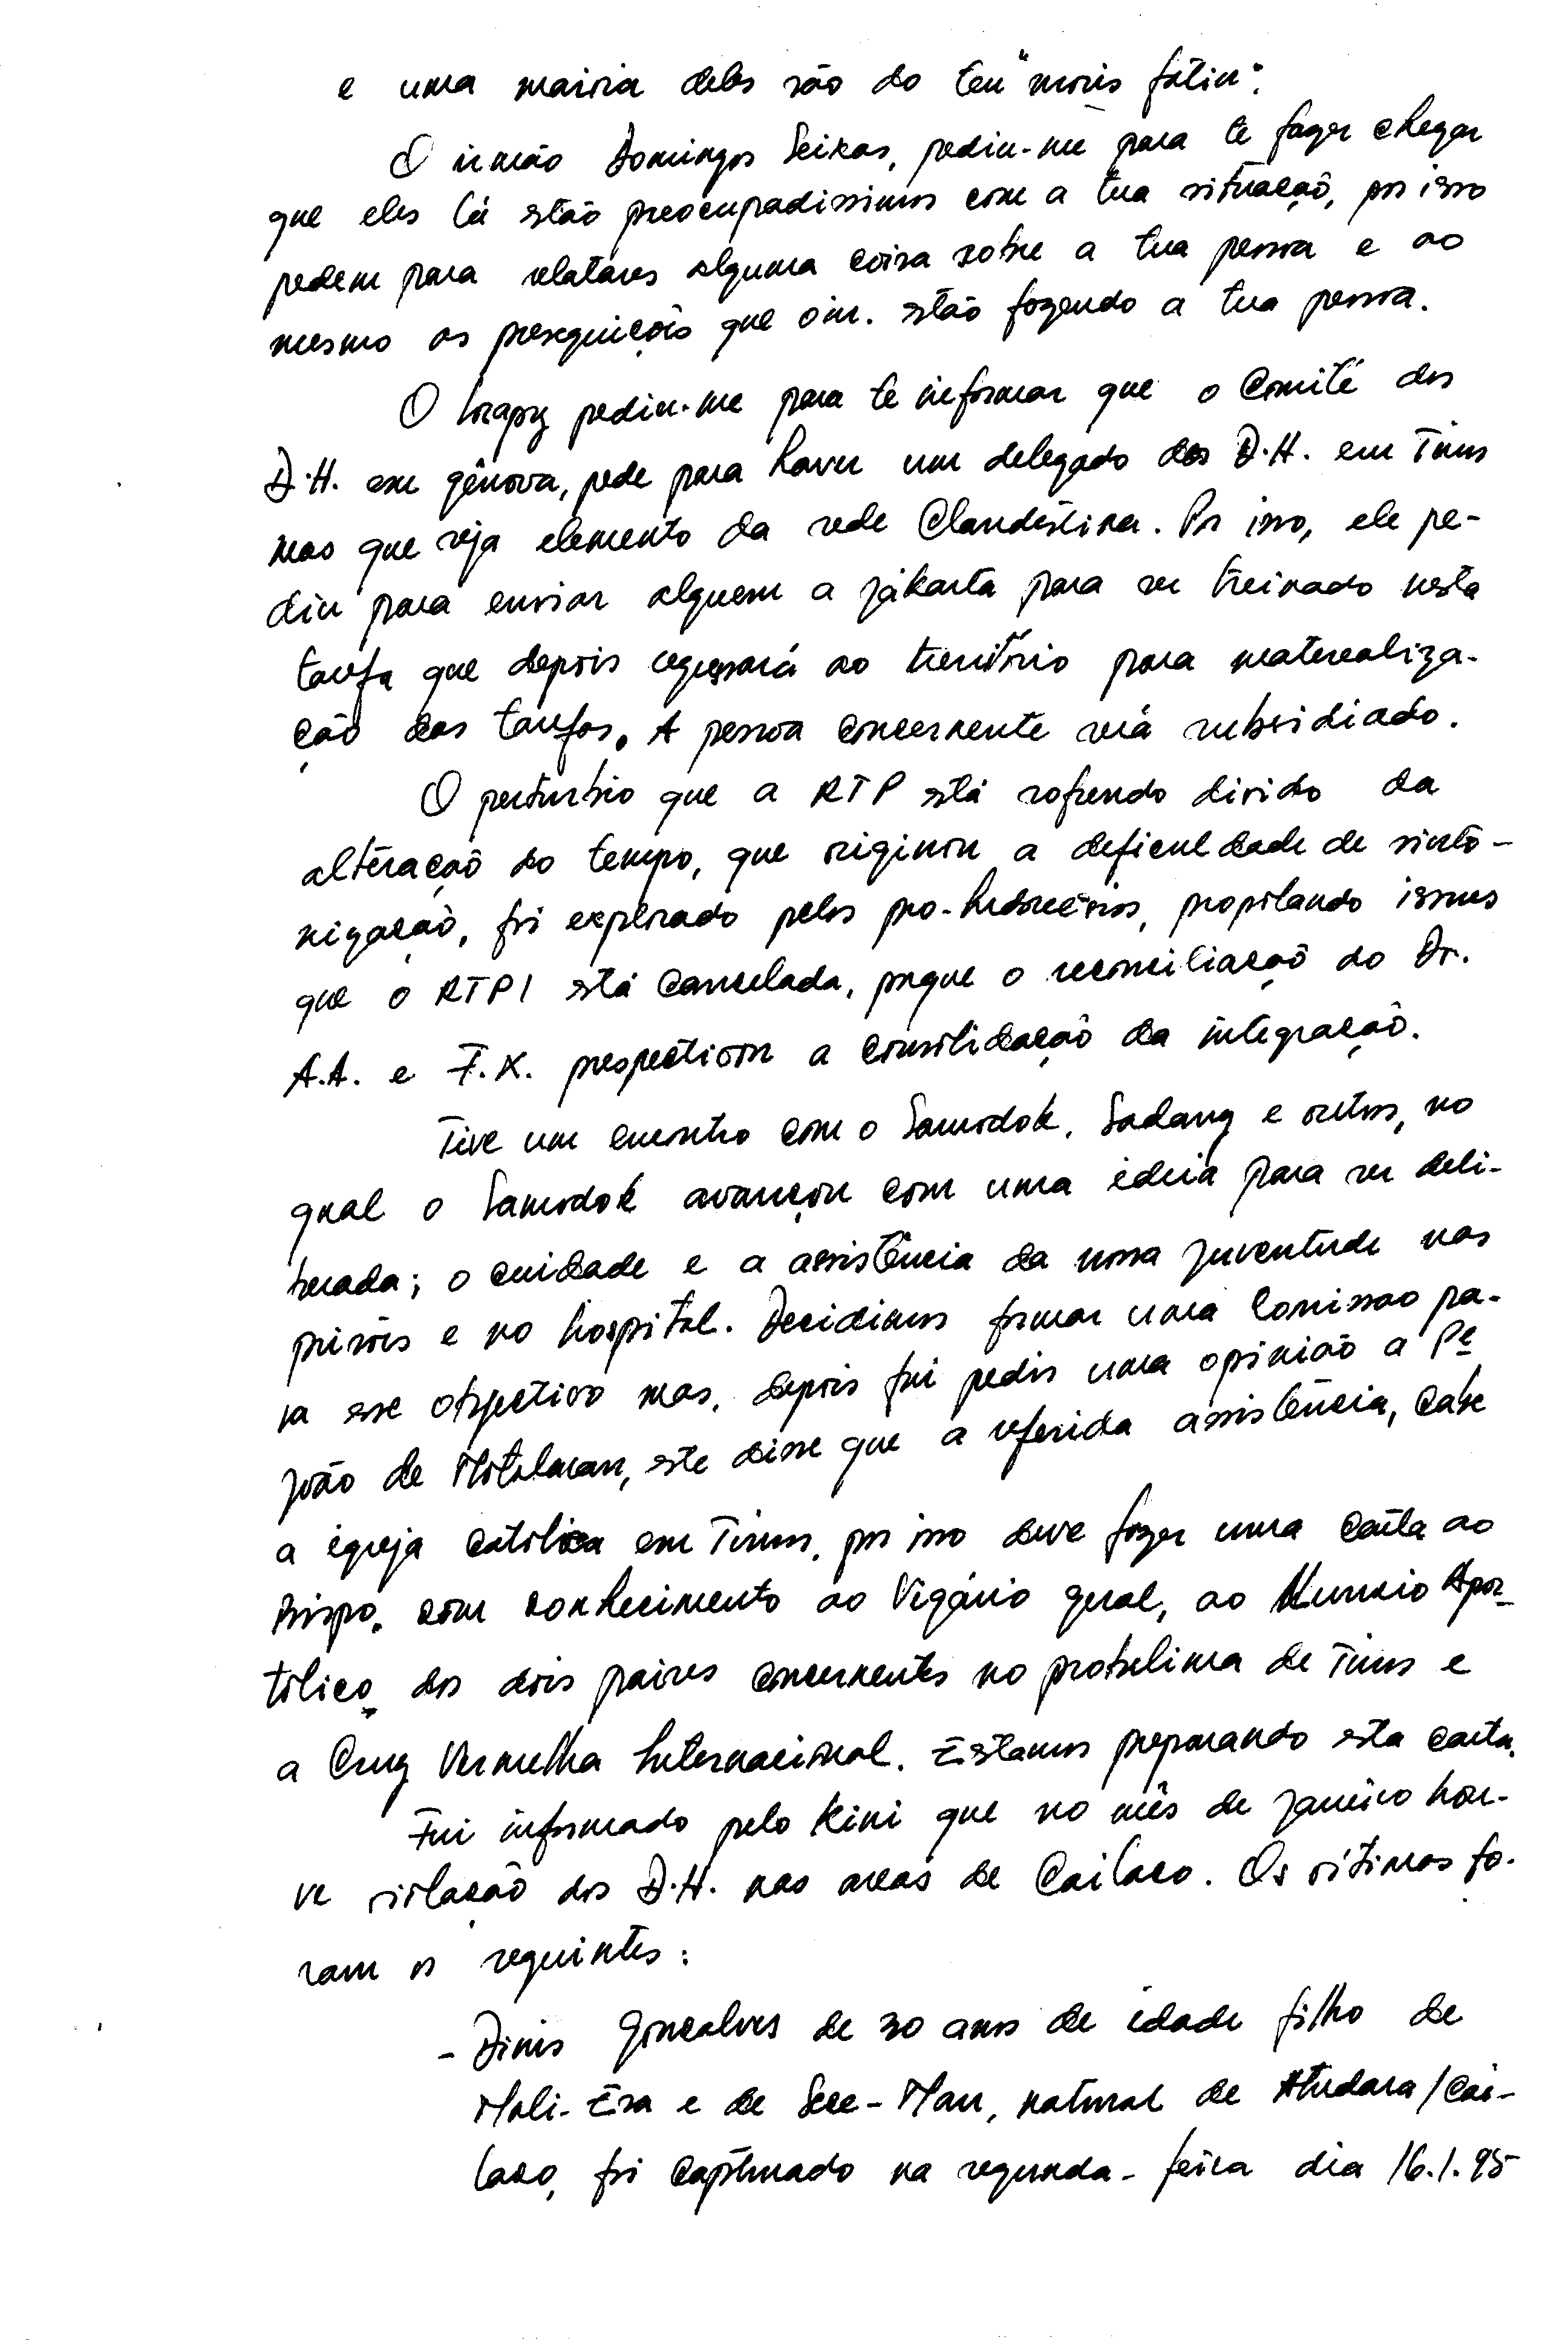 e uma maioria deles são do teu "moris fátin".
O irmão Domingos Seixas, pediu-me para te fazer chegar
que eles lá estão preocupadissimos com a tua situação, por isso
pedem para relatares alguma coisa sobre a tua pessoa e ao
mesmo as preseguições que o in. estão fazendo a tua pessoa.
O pediu-me para te informar que o Comité dos
D.H. em génova, pede para haver um delegado dos D.H. em Timor
mas que seja elemento da rede Clandestina. Por isso, ele pe-
diu para enviar alguem a jákarta para ser treinado nesta
tarefa que depois regressará ao território para materealiza-
ção das tarefas. A pessoa concernente será subsidiado.
O perturbio que a RTP está sofrendo divido da
alteração do tempo, que originou a deficuldade de sinto-
nização, foi explorado pelos pro-Indonésios, propalando issues
que o RTPI está cancelada, porque o reconciliação do Dr.
A.A. e F.X. prespectivou a consolidação da integração.
Tive um encontro com o Samodok, Sadang e outros, no
qual o Samodok avançou com uma ideia para ser deli-
berada; o cuidade e a assistência da nossa juventude nas
prisões e no hospital. Decidimos formar uma Comissao pa-
ra esse objectivo mas, depois fui pedir uma opinião a Pe
João de este disse que a referida assistência, cabe
a igreja católica em Timor, por isso deve fazer uma carta ao
Bispo, com conhecimento ao Vigário geral, ao Nuncio Apos-
tólico dos dois paises concernentes no probelima de Timor e
a Cruz Vermelha Internacional. Estamos preparando esta carta.
Fui informado pelo Kini que no mês de janeiro hou-
ve violação dos D.H. nas areas de Cailaco. Os vítimas fo-
ram os seguintes:
- Dinis Gonçalves de 30 anos de idade filho de
Mali-Era e de Seee-Mau, natural de Atudara/Cai-
laco, foi capturado na segunda-feira dia 16.1.95